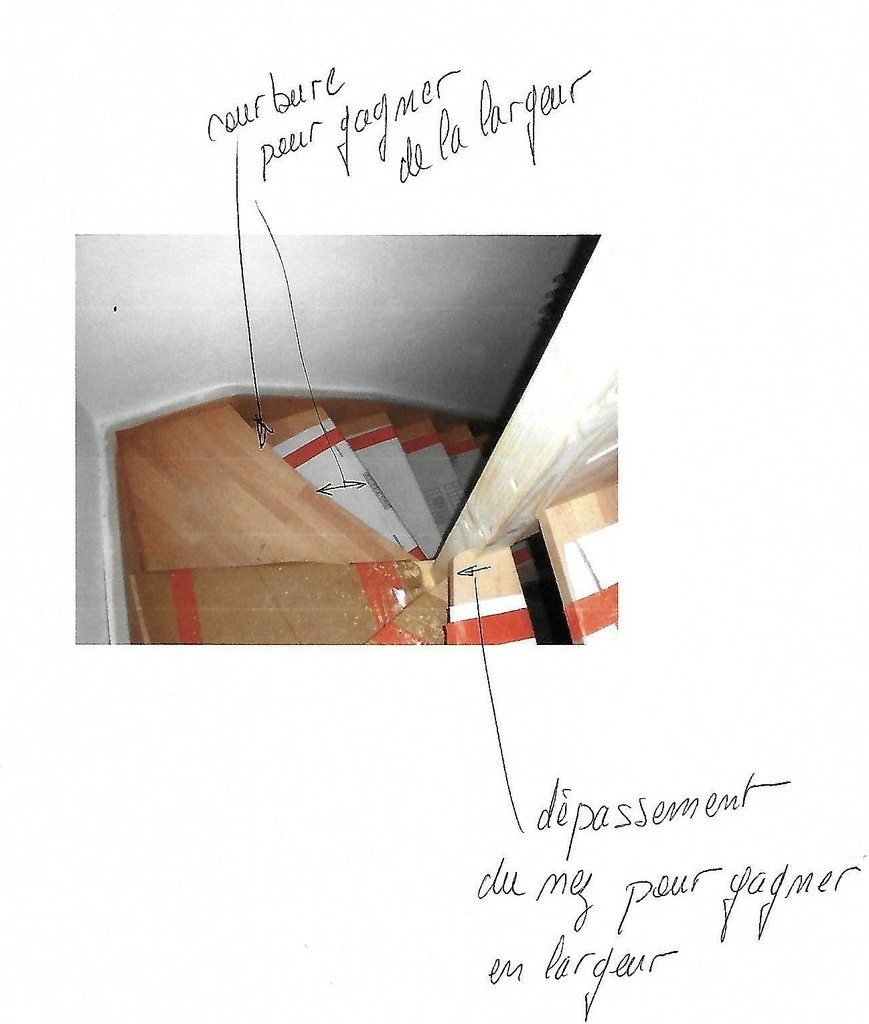 courbure
pour gagner
de la largeur
dépassement
du nez pour gagner
en largeur